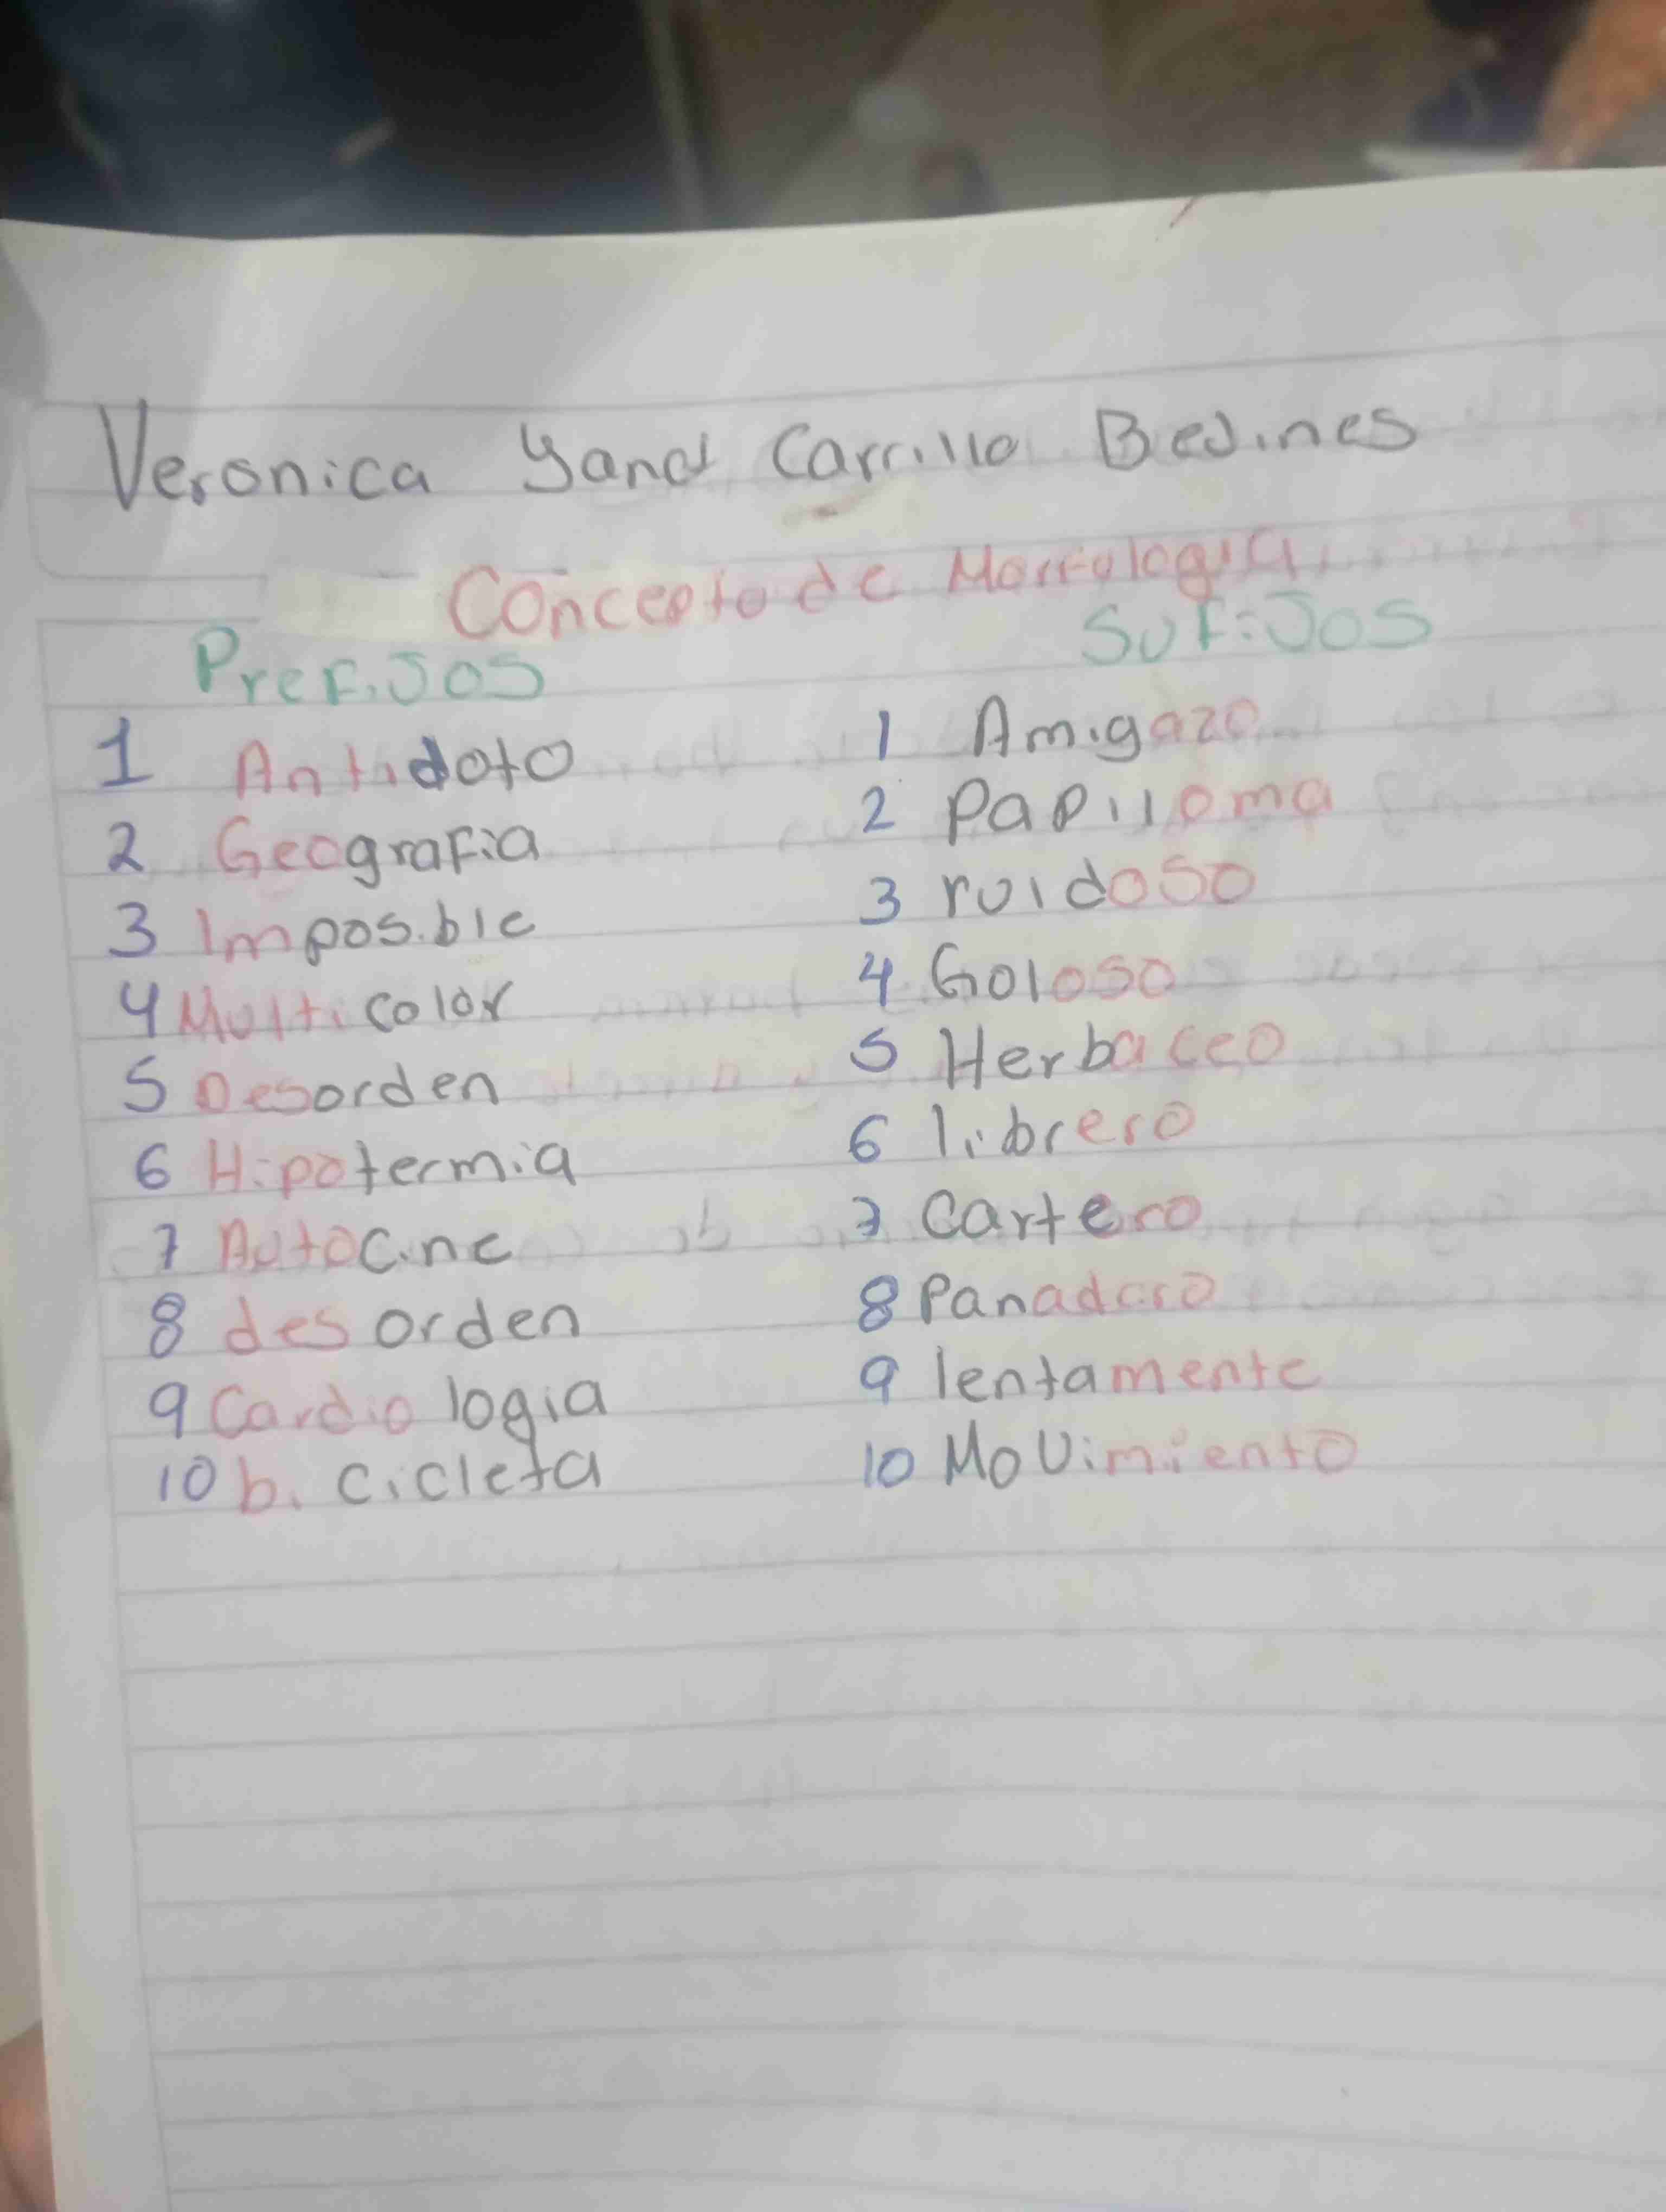 Veronica Yanel Carrillo Bejines
Concepto de Morfologia
Prefijos
1 Antidoto
2 Geografia
3 Imposible
4 Multicolor
5 Desorden
6 Hipotermia
7 Autocine
8 des orden
9 Cardio logia
10 bi cicleta
Sufijos
1 Amigazo
2 Papiloma
3 ruidoso
4 Goloso
5 Herbaceo
6 librero
7 Cartero
8 Panadero
9 lentamente
10 Movimiento